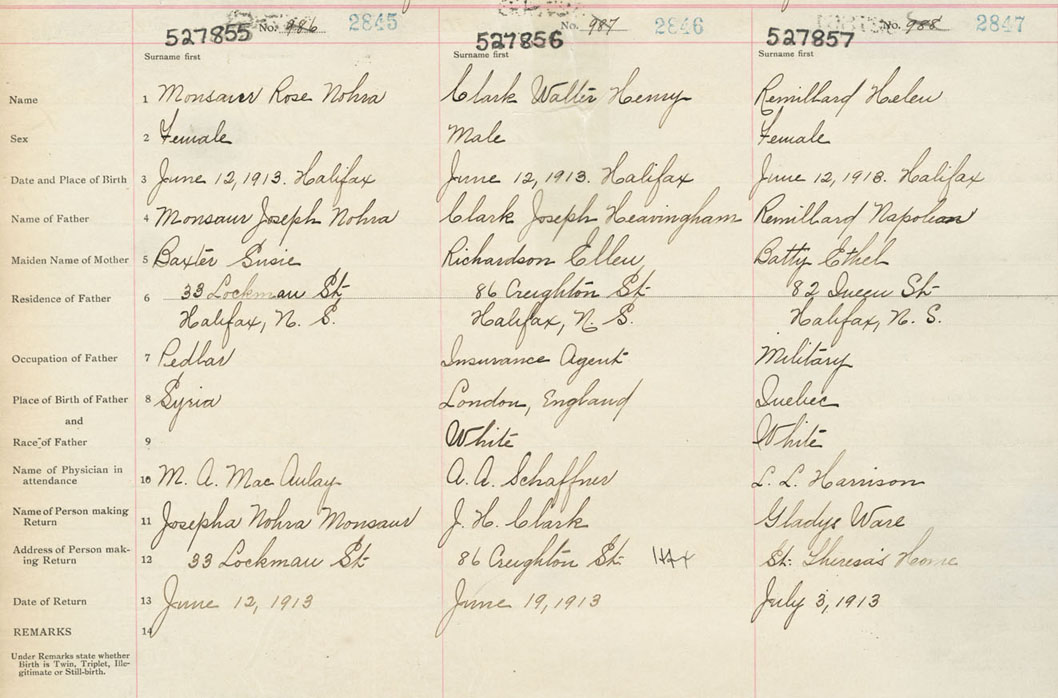 527855 No. 986 2845 527856 No. 987 2846 527857 No. 988 2847
Surname first Surname first Surname first
Name 1 Monsaur Rose Nohra Clark Walter Henry Remillard Helen
Sex 2 Female Male Female
Date and Place of Birth 3 June 12, 1913. Halifax June 12, 1913. Halifax June 12, 1913. Halifax
Name of Father 4 Monsaur Joseph Nohra Clark Joseph Heavingham Remillard Napolean
Maiden Name of Mother 5 Baxter Susie Richardson Ellen Batty Ethel
Residence of Father 6 33 Lockman St. 86 Creighton St. 82 Queen St.
Halifax, N. S. Halifax, N. S. Halifax, N. S.
Occupation of Father 7 Pedlar Insurance Agent Military
Place of Birth of Father 8 Syria London, England Quebec
and
Race of Father 9 White White
Name of Physician in
attendance 10 M. A. MacAulay A. A. Schaffner L. L. Harrison
Name of Person making
Return 11 Josepha Nohra Monsaur J. H. Clark Gladys Ware
Address of Person mak-
ing Return 12 33 Lockman St. 86 Creighton St. Hfx St. Theresa's Home
Date of Return 13 June 12, 1913 June 19, 1913 July 3, 1913
REMARKS 14
Under Remarks state whether
Birth is Twin, Triplet, Ille-
gitimate or Still-birth.